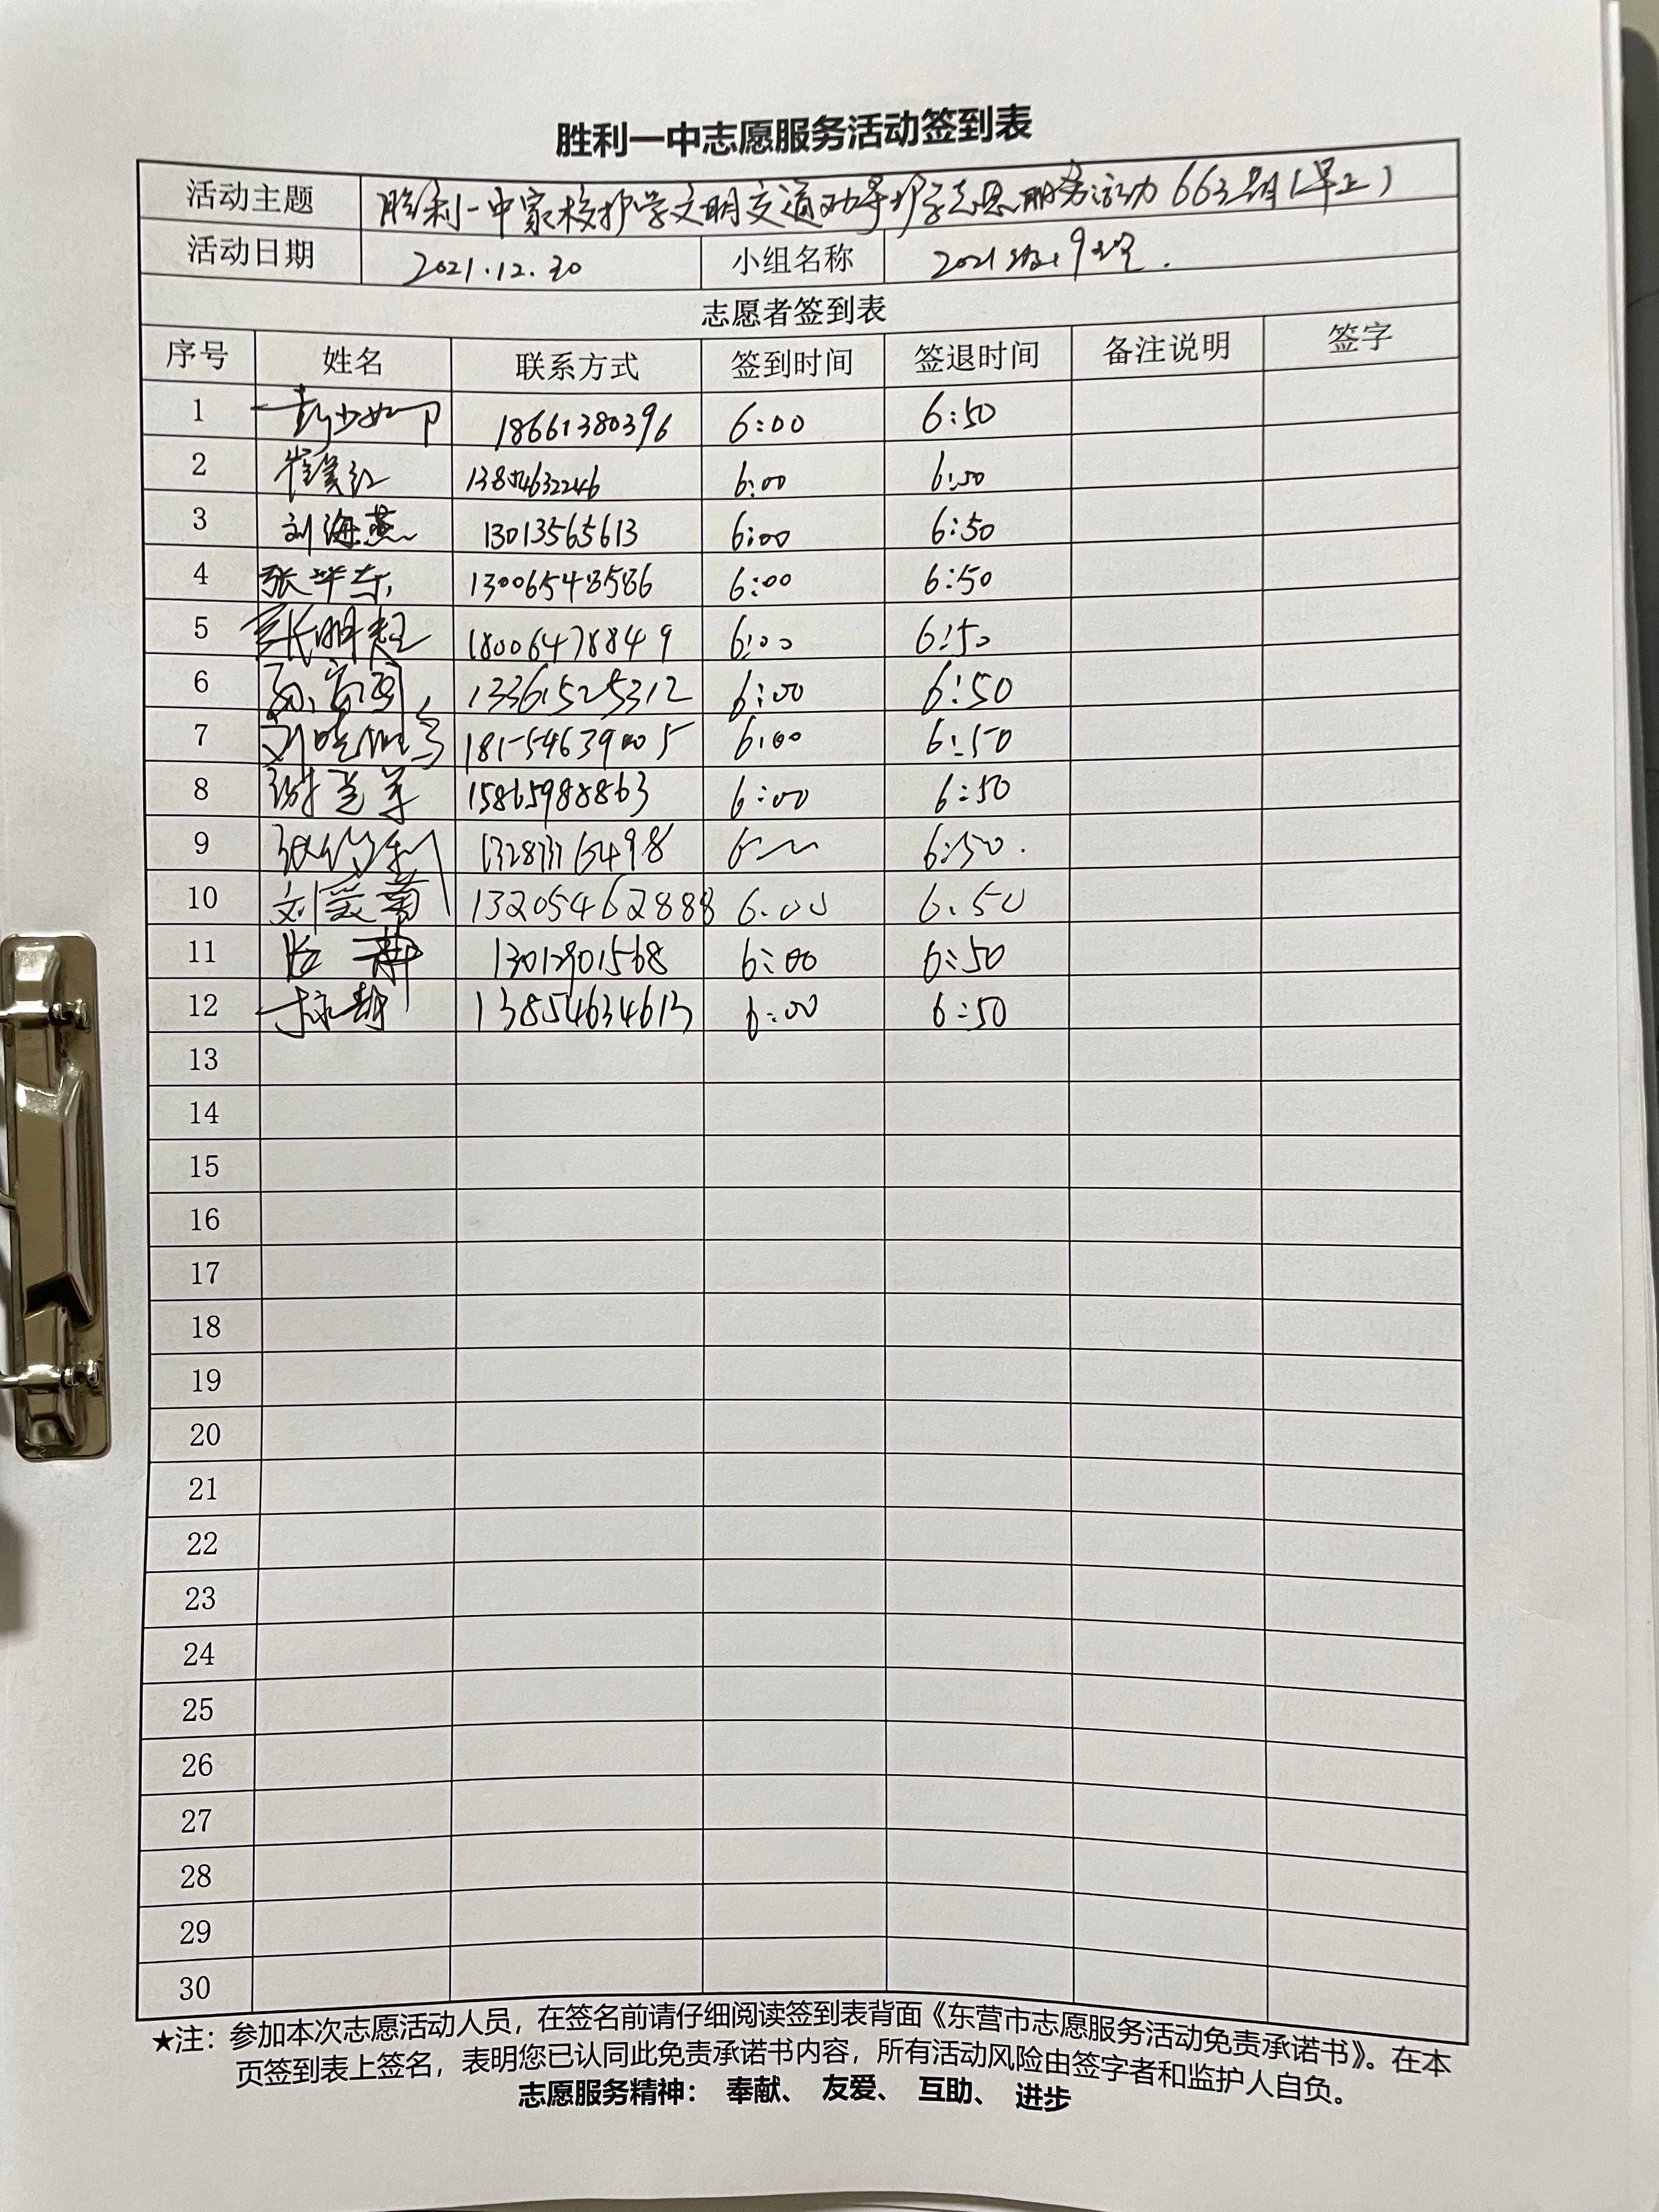 胜利一中志愿服务活动签到表
活动主题 胜利一中家校护学文明交通劝导护学志愿服务活动663期(早上)
活动日期 2021.12.30 小组名称 2021级19班.
志愿者签到表
序号 姓名 联系方式 签到时间 签退时间 备注说明 签字
1 18661380396 6:00 6:50
2 13854632246 6:00 6:50
3 刘海燕 13013565613 6:00 6:50
4 张华东 13006548586 6:00 6:50
5 张明超 18006478849 6:00 6:50
6 13361525312 6:00 6:50
7 18154639005 6:00 6:50
8 15865988863 6:00 6:50
9 6:50.
10 刘爱菊 13205462888 6.00 6.50
11 13012901568 6:00 6:50
12 13854634613 6:00 6:50
13
14
15
16
17
18
19
20
21
22
23
24
25
26
27
28
29
30
★注：参加本次志愿活动人员，在签名前请仔细阅读签到表背面《东营市志愿服务活动免责承诺书》。在本
页签到表上签名，表明您已认同此免责承诺书内容，所有活动风险由签字者和监护人自负。
志愿服务精神： 奉献、 友爱、 互助、 进步